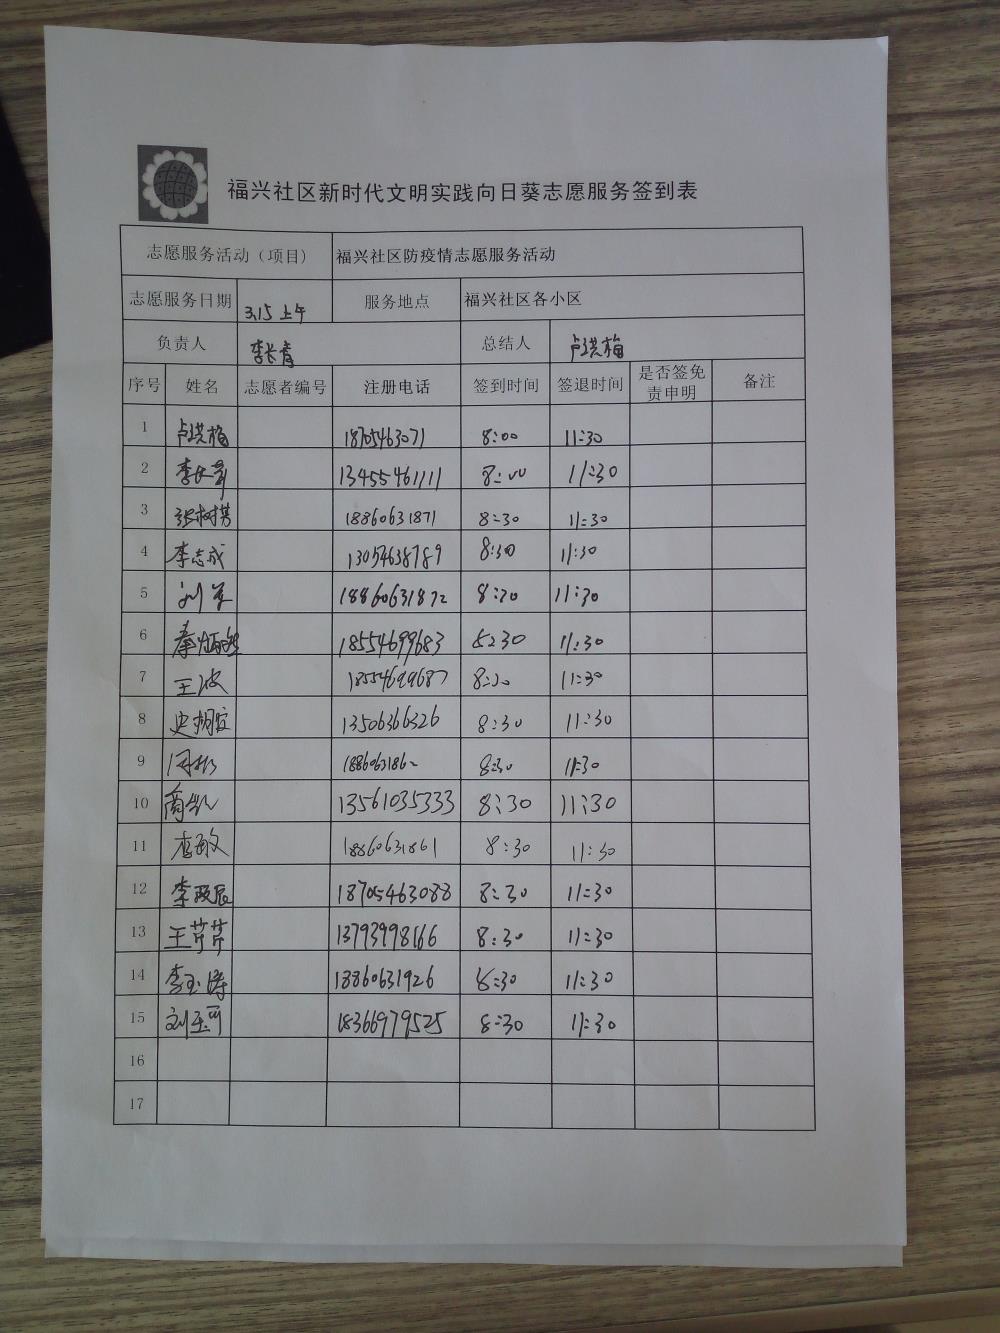 福兴社区新时代文明实践向日葵志愿服务签到表
志愿服务活动（项目） 福兴社区防疫情志愿服务活动
志愿服务日期 3.15 上午 服务地点 福兴社区各小区
负责人 李长青 总结人 卢洪梅
序号 姓名 志愿者编号 注册电话 签到时间 签退时间 是否签免责申明 备注
1 卢洪梅 18705463071 8:00 11:30
2 13455461111 8:00 11:30
3 18860631871 8:30 11:30
4 李志成 13054638789 8:30 11:30
5 刘军 18860631872 8:30 11:30
6 18554699683 8:30 11:30
7 王波 18554699687 8:30 11:30
8 13506366326 8:30 11:30
9 8:30 11:30
10 商凯 13561035333 8:30 11:30
11 李敏 18860631861 8:30 11:30
12 18705463088 8:30 11:30
13 王芹芹 13793998166 8:30 11:30
14 李玉涛 18860631926 8:30 11:30
15 18366979525 8:30 11:30
16
17